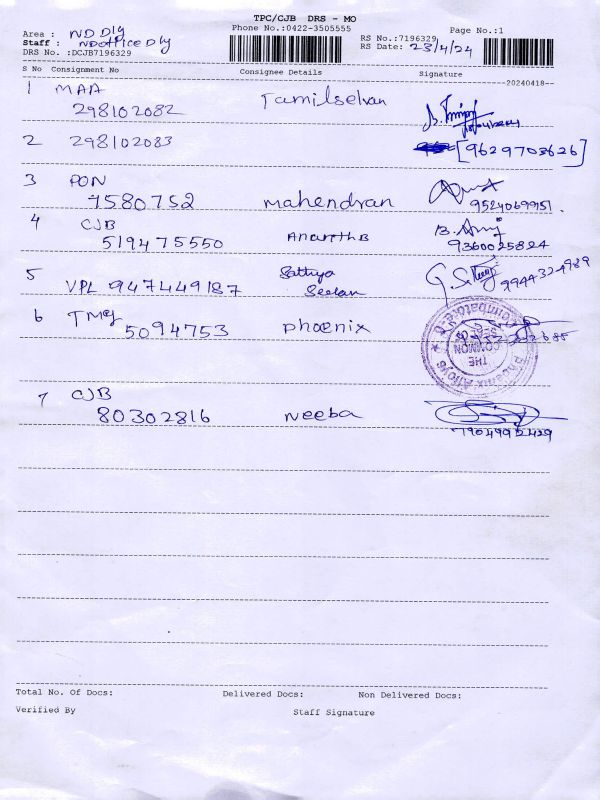 TPC/CJB DRS - MO
Phone No.:0422-3505555
Page No.:1
Area : ND Dly
Staff : NDoffice Dly
DRS No. :DCJB7196329
RS No.:7196329
RS Date: 23/4/24
S No Consignment No Consignee Details Signature
--20240418--
1 MAA
298102082 Tamilselvan
2 298102083 [9629703626]
3 PON
7580752 mahendran
9524069951.
4 CJB
519475550 Ananth B
9360025824
5 Sathya
VPL 947449187 Seelan 9944324989
6 TMG
5094753 phoenix
Phoenix Alloys
THE
COMMON
SEAL
Coimbatore
7 CJB
80302816 Neeba
7904992429
Total No. Of Docs: Delivered Docs: Non Delivered Docs:
Verified By Staff Signature